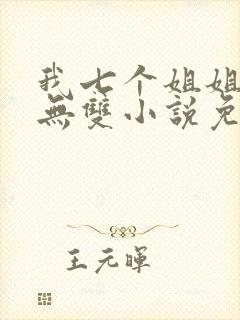 我七个姐姐
無雙小說免
王元暉